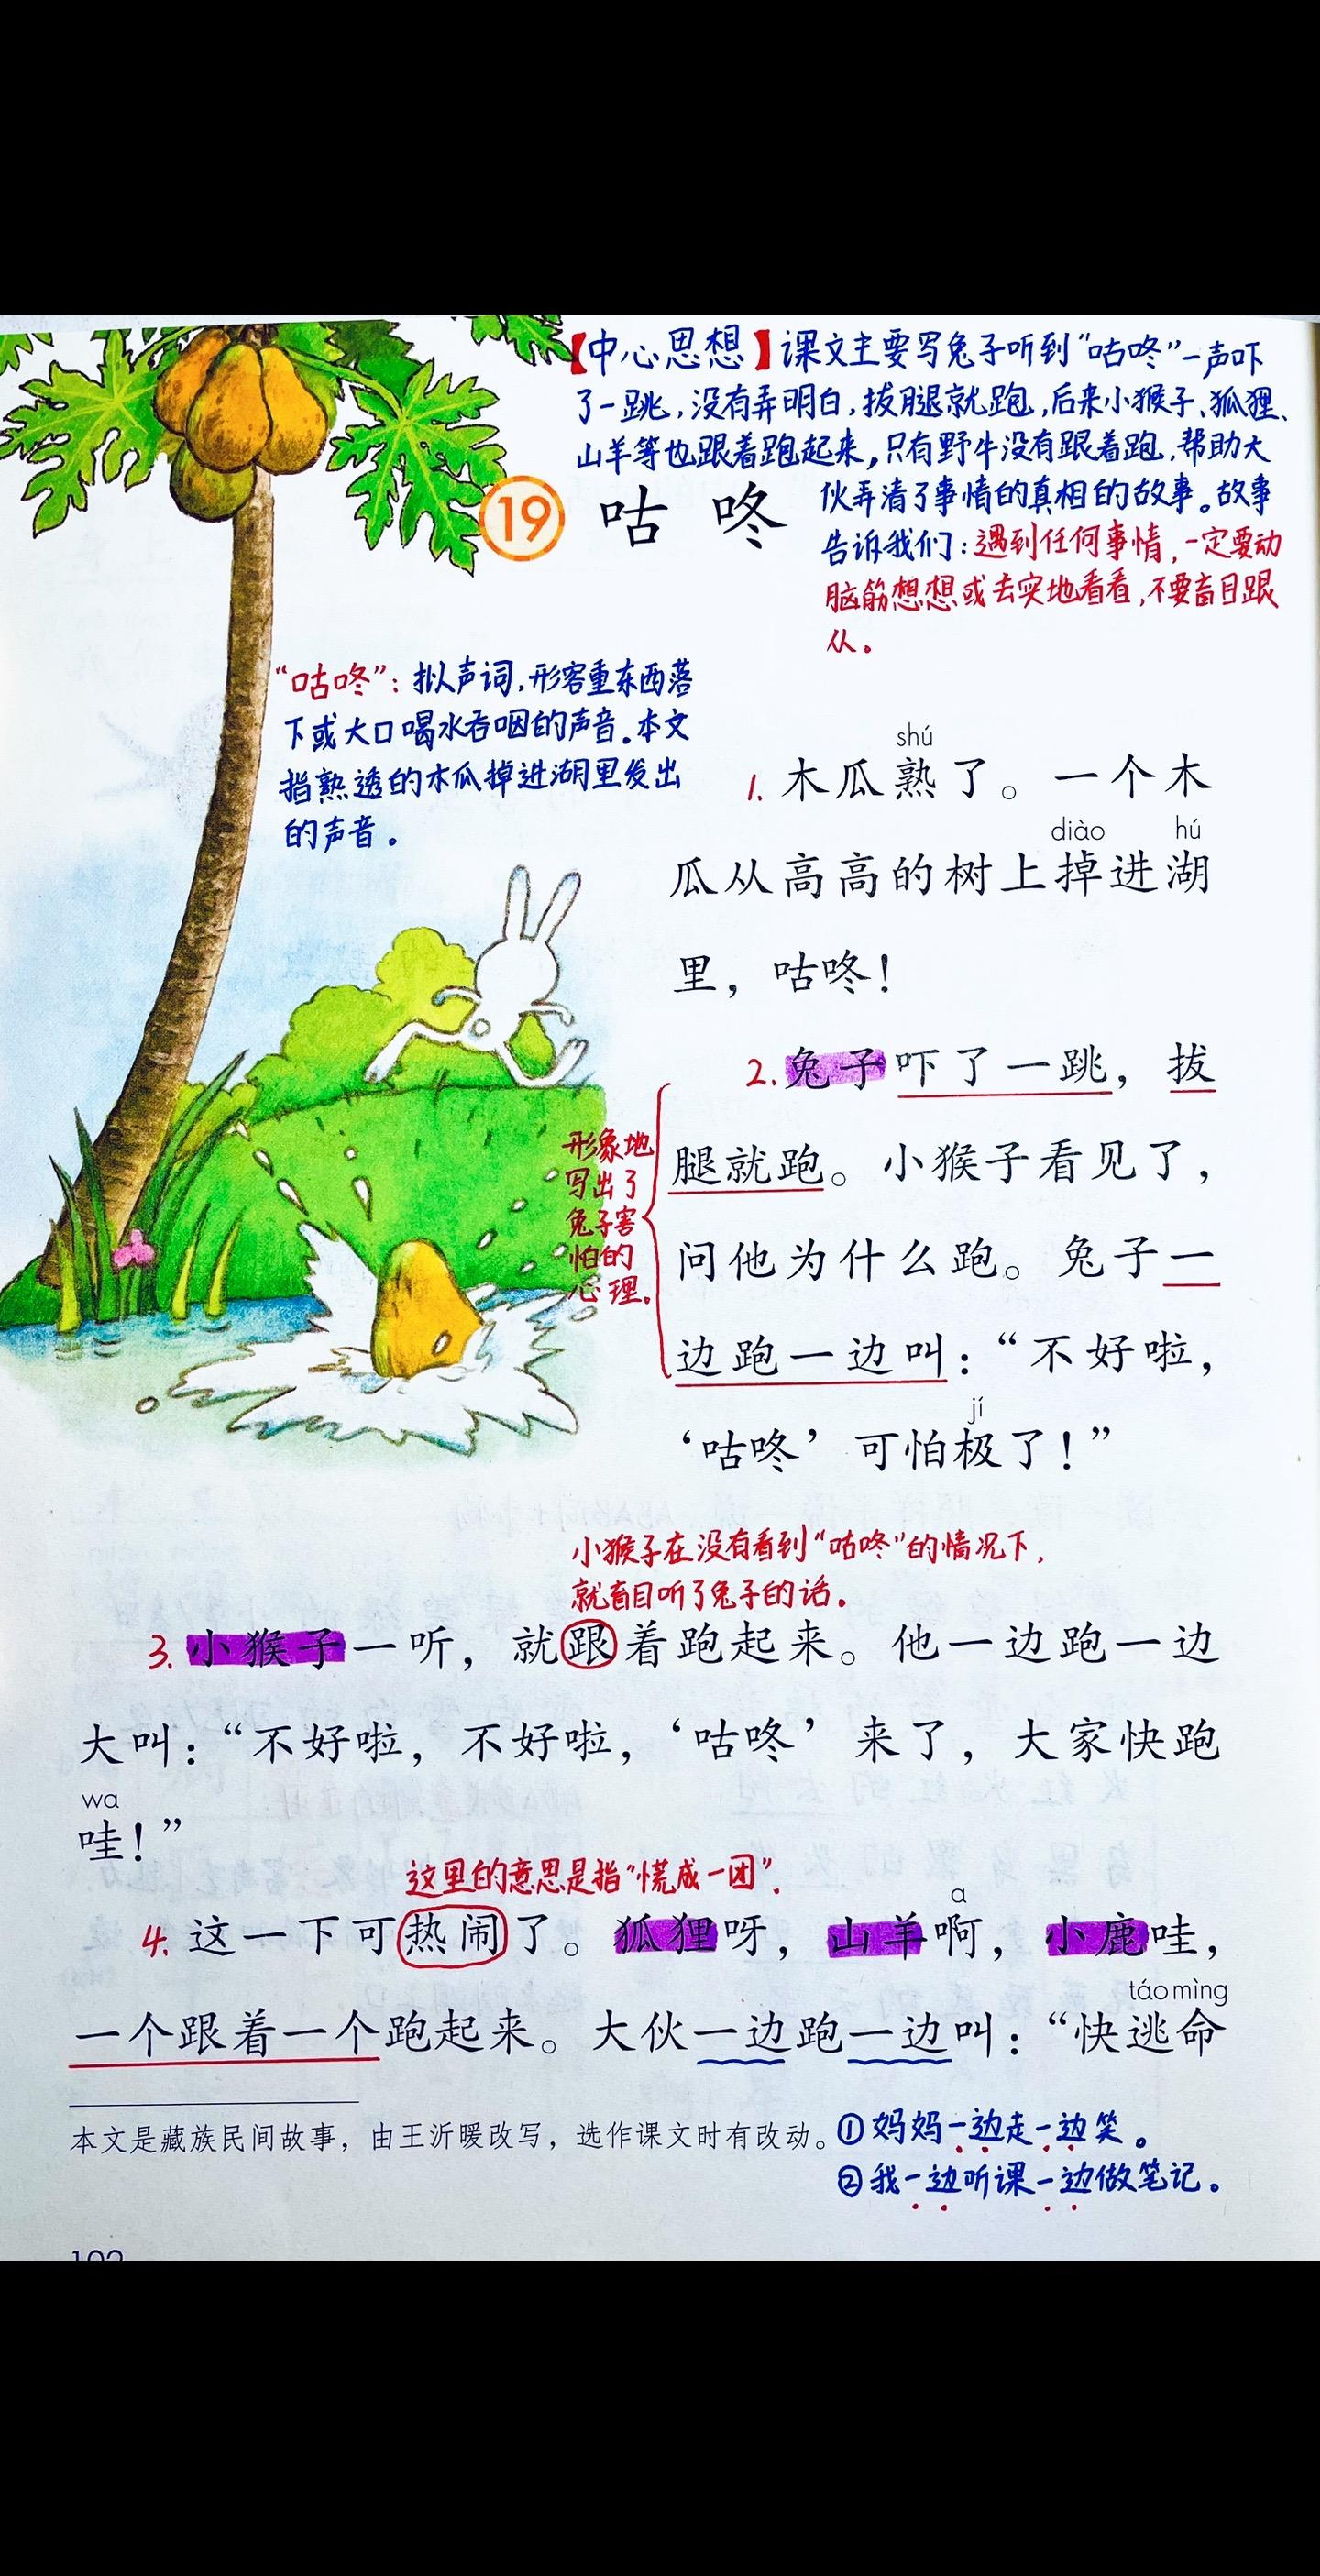 【中心思想】课文主要写兔子听到“咕咚”一声吓
了一跳，没有弄明白，拔腿就跑，后来小猴子、狐狸、
山羊等也跟着跑起来，只有野牛没有跟着跑，帮助大
伙弄清了事情的真相的故事。故事
告诉我们：遇到任何事情，一定要动
脑筋想想或去实地看看，不要盲目跟
从。
19 咕咚
“咕咚”：拟声词，形容重东西落
下或大口喝水吞咽的声音。本文
指熟透的木瓜掉进湖里发出
的声音。
shú
1. 木瓜熟了。一个木
diào hú
瓜从高高的树上掉进湖
里，咕咚！
2. 兔子吓了一跳，拔
腿就跑。小猴子看见了，
问他为什么跑。兔子一
边跑一边叫：“不好啦，
jí
‘咕咚’可怕极了！”
形象地
写出了
兔子害
怕的
心理。
小猴子在没有看到“咕咚”的情况下，
就盲目听了兔子的话。
3. 小猴子一听，就跟着跑起来。他一边跑一边
大叫：“不好啦，不好啦，‘咕咚’来了，大家快跑
wa
哇！”
这里的意思是指“慌成一团”．
a
4. 这一下可热闹了。狐狸呀，山羊啊，小鹿哇，
táo mìng
一个跟着一个跑起来。大伙一边跑一边叫：“快逃命
本文是藏族民间故事，由王沂暖改写，选作课文时有改动。
①妈妈一边走一边笑。
②我一边听课一边做笔记。